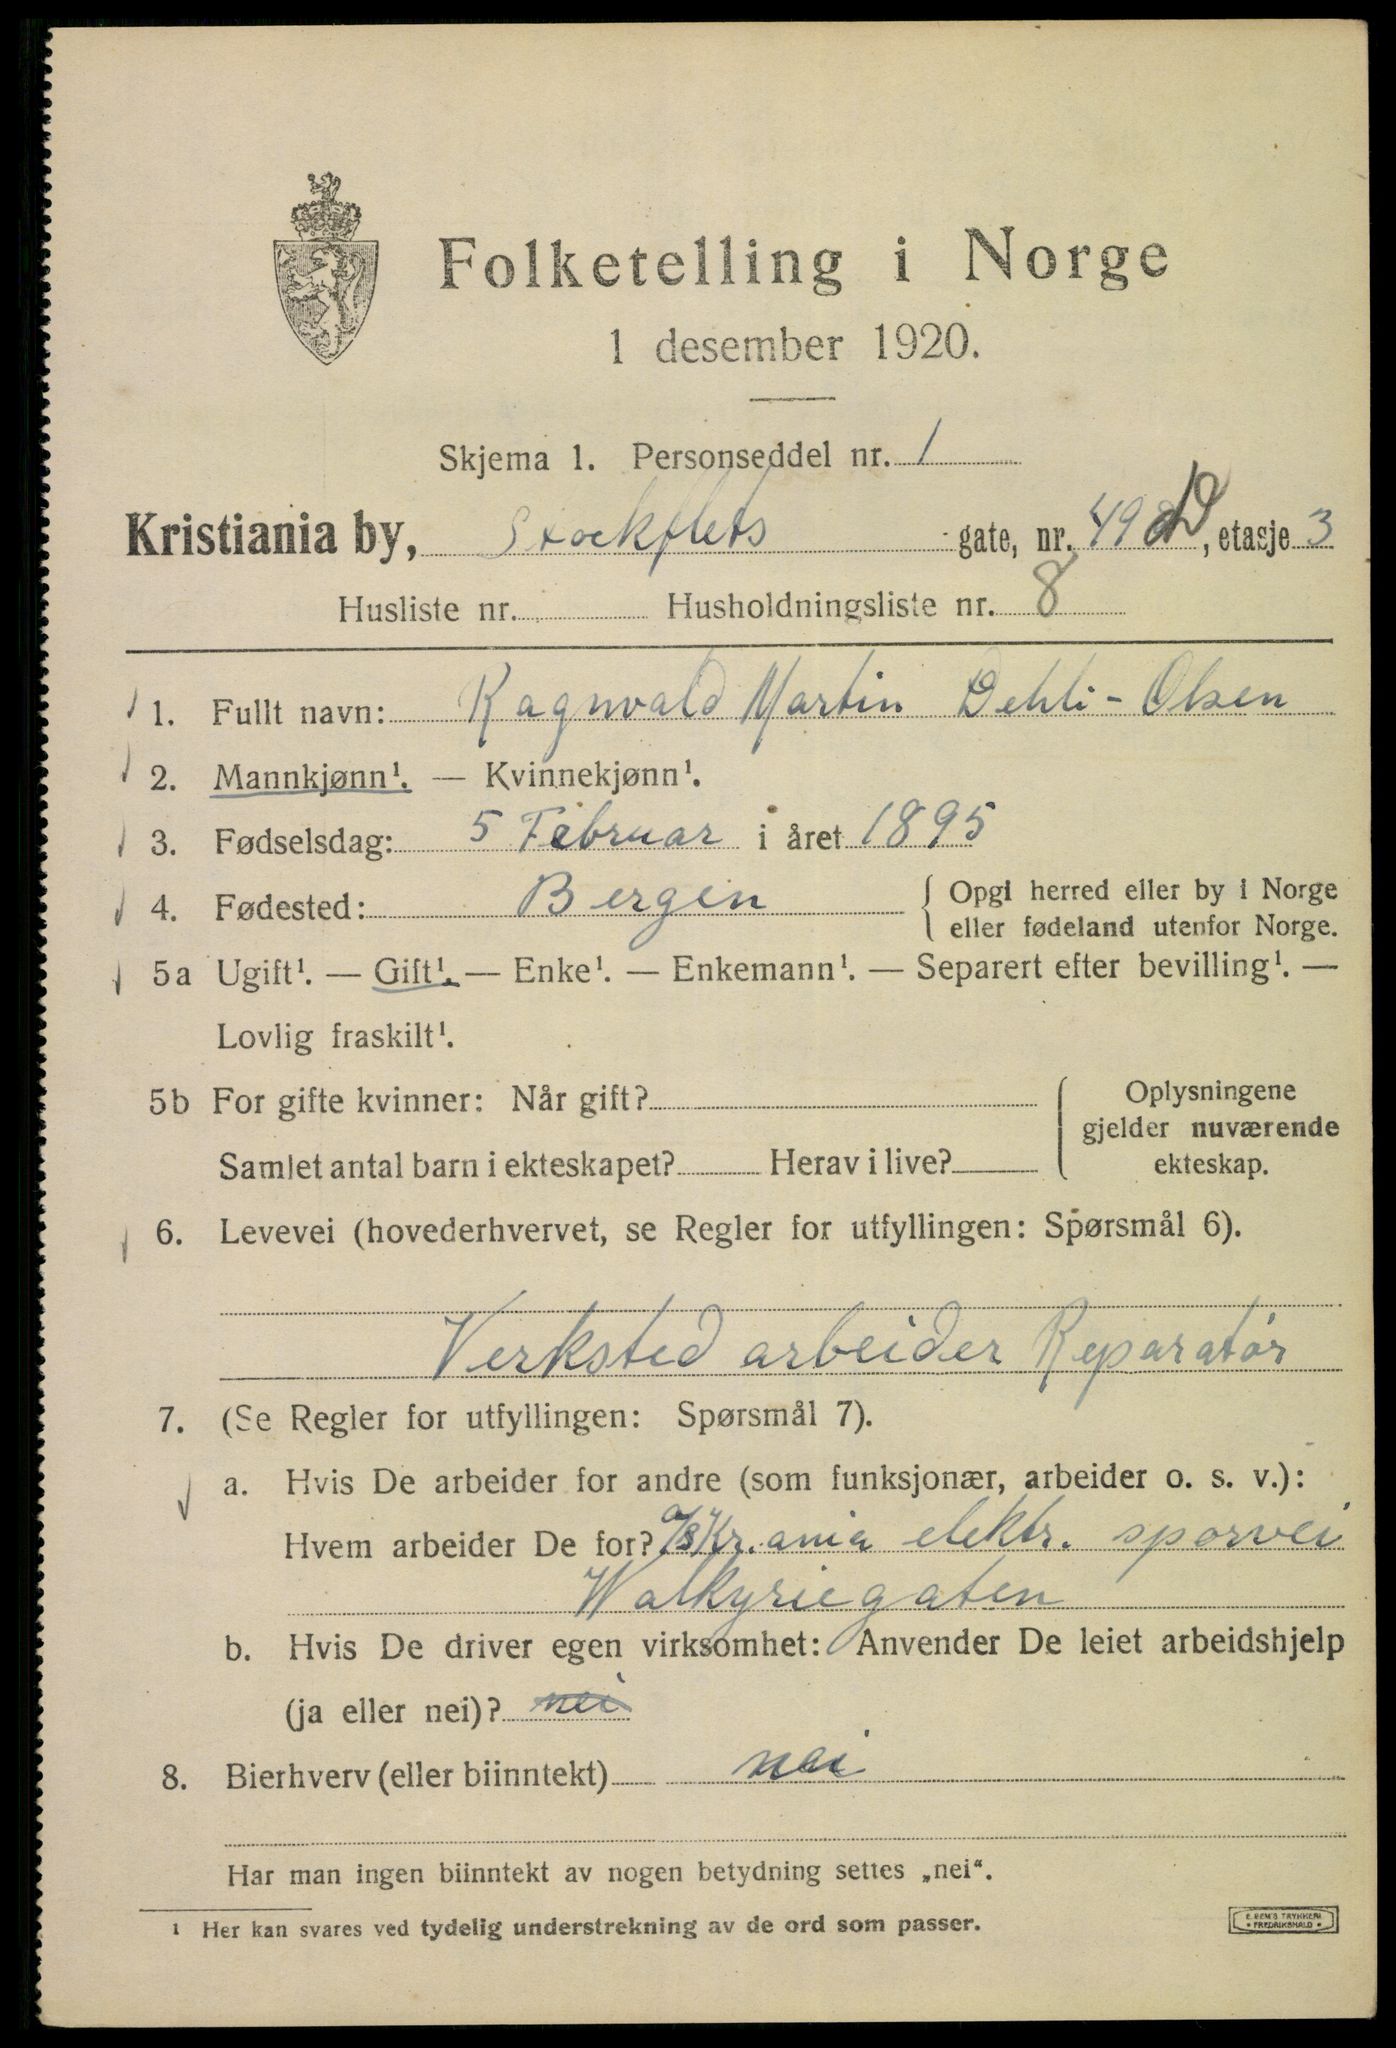 Folketelling i Norge
1 desember 1920.
Skjema 1. Personseddel nr. 1
Kristiania by, Stockflets gate, nr. 49 D, etasje 3
Husliste nr. Husholdningsliste nr. 8
1. Fullt navn: Ragnvald Martin Dehli-Olsen
2. Mannkjønn¹. — Kvinnekjønn¹.
3. Fødselsdag: 5 Februar i året 1895
4. Fødested: Bergen { Opgi herred eller by i Norge
eller fødeland utenfor Norge.
5a Ugift¹. — Gift¹. — Enke¹. — Enkemann¹. — Separert efter bevilling¹. —
Lovlig fraskilt¹.
5b For gifte kvinner: Når gift? { Oplysningene
gjelder nuværende
Samlet antal barn i ekteskapet? Herav i live? ekteskap.
6. Levevei (hovederhvervet, se Regler for utfyllingen: Spørsmål 6).
Verksted arbeider Reparatør
7. (Se Regler for utfyllingen: Spørsmål 7).
a. Hvis De arbeider for andre (som funksjonær, arbeider o. s. v.):
Hvem arbeider De for? a/s Kr.ania elektr. sporvei
Walkyriegaten
b. Hvis De driver egen virksomhet: Anvender De leiet arbeidshjelp
(ja eller nei)? nei
8. Bierhverv (eller biinntekt) nei
Har man ingen biinntekt av nogen betydning settes „nei“.
¹ Her kan svares ved tydelig understrekning av de ord som passer.
E. SEM'S TRYKKERI
• FREDRIKSHALD •